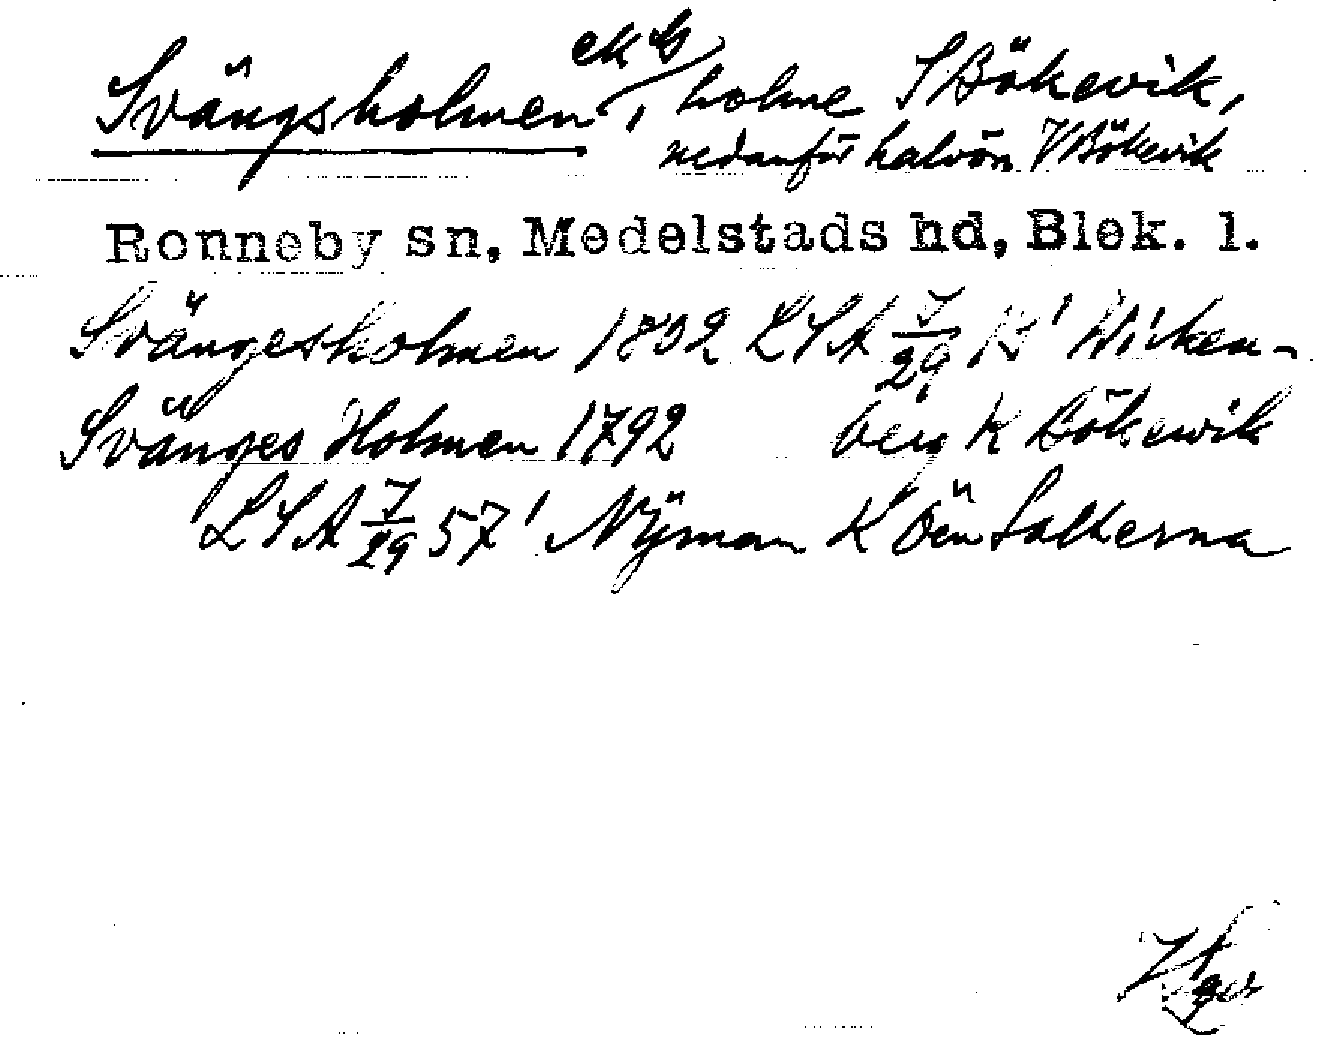 Svängsholmen ek G, holme S Bökevik,
nedanför halvön V Bökevik
Ronneby sn, Medelstads hd, Blek. l.
Svängesholmen 1802 LSA 7/29 Wicken-
Svänges Holmen 1792 berg K Bökewik
LSA 7/29 57' Nÿman K Öen Salterna